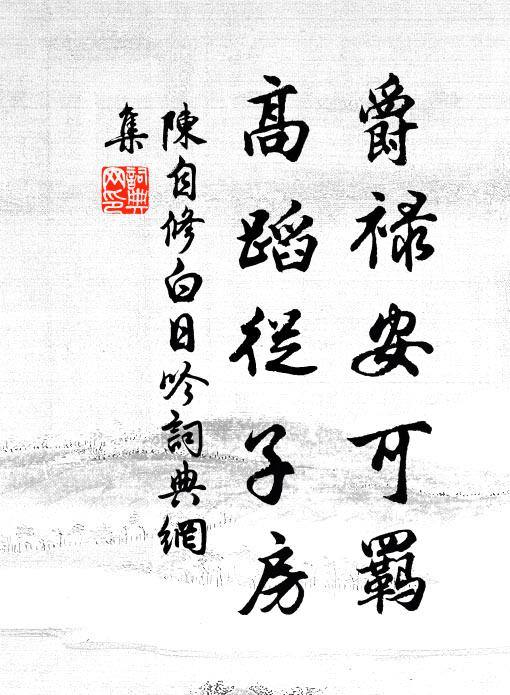 爵祿安可羈
高蹈從子房
陳自修白日吟詞典網
集
詞典
网印